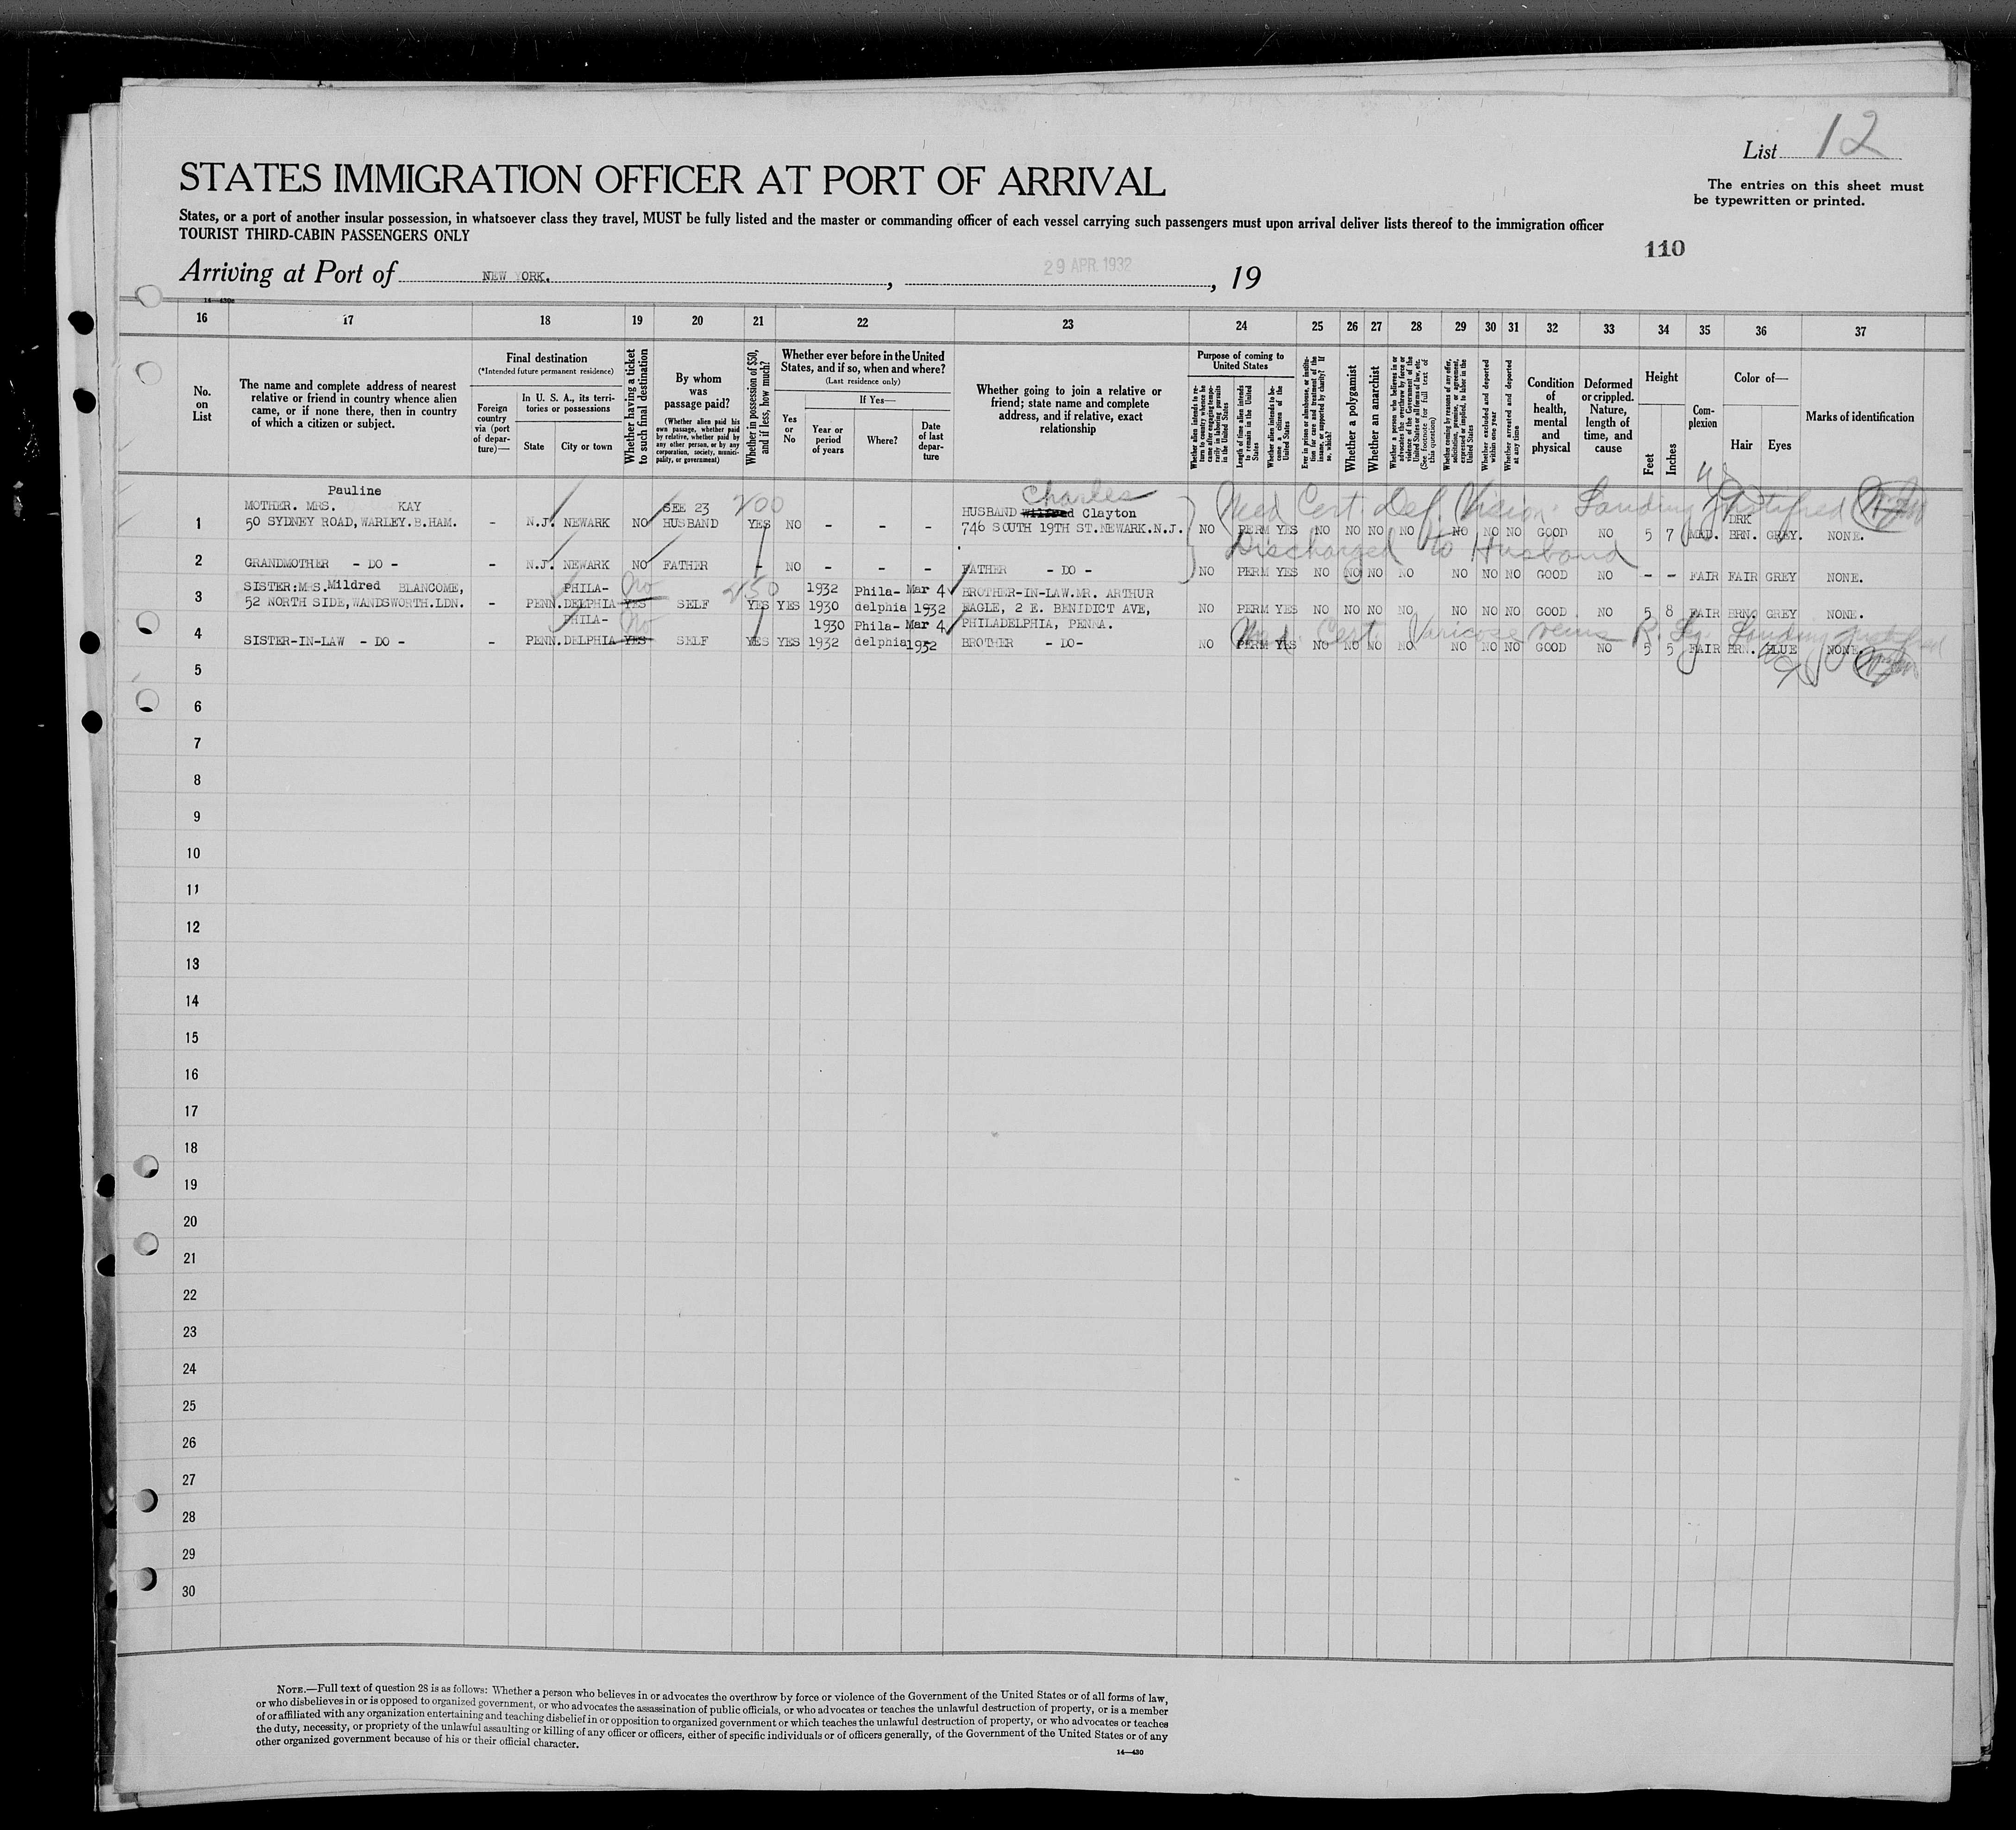 List 12
STATES IMMIGRATION OFFICER AT PORT OF ARRIVAL
The entries on this sheet must
be typewritten or printed.
States, or a port of another insular possession, in whatsoever class they travel, MUST be fully listed and the master or commanding officer of each vessel carrying such passengers must upon arrival deliver lists thereof to the immigration officer
TOURIST THIRD-CABIN PASSENGERS ONLY
110
Arriving at Port of NEW YORK. , 29 APR. 1932 , 19
14—430a
16 17 18 19 20 21 22 23 24 25 26 27 28 29 30 31 32 33 34 35 36 37
No. on List
The name and complete address of nearest
relative or friend in country whence alien
came, or if none there, then in country
of which a citizen or subject.
Final destination
(*Intended future permanent residence)
Foreign country via (port of departure)—
In U. S. A., its territories or possessions
State
City or town
Whether having a ticket to such final destination
By whom was passage paid?
(Whether alien paid his own passage, whether paid by relative, whether paid by any other person, or by any corporation, society, municipality, or government)
Whether in possession of $50, and if less, how much?
Whether ever before in the United
States, and if so, when and where?
(Last residence only)
Yes or No
If Yes—
Year or period of years
Where?
Date of last departure
Whether going to join a relative or
friend; state name and complete
address, and if relative, exact
relationship
Purpose of coming to United States
Whether alien intends to return to country whence he came after engaging temporarily in laboring pursuits in the United States
Length of time alien intends to remain in the United States
Whether alien intends to become a citizen of the United States
Ever in prison or almshouse, or institution for care and treatment of the insane, or supported by charity? If so, which?
Whether a polygamist
Whether an anarchist
Whether a person who believes in or advocates the overthrow by force or violence of the Government of the United States or all forms of law, etc. (See footnote for full text of this question)
Whether coming by reasons of any offer, solicitation, promise, or agreement, expressed or implied, to labor in the United States
Whether excluded and deported within one year
Whether arrested and deported at any time
Condition of health, mental and physical
Deformed or crippled. Nature, length of time, and cause
Height
Feet
Inches
Complexion
Color of—
Hair
Eyes
Marks of identification
Pauline
MOTHER. MRS. KAY SEE 23 200 Charles Med Cert. Def. Vision. Landing Justified
HUSBAND Wilfred Clayton DRK
1 50 SYDNEY ROAD, WARLEY. B.HAM. - N.J. NEWARK NO HUSBAND YES NO - - - 746 SOUTH 19TH ST. NEWARK. N.J. NO PERM YES NO NO NO NO NO NO NO GOOD NO 5 7 MED. BRN. GREY. NONE.
Discharged to Husband
2 GRANDMOTHER - DO - - N.J. NEWARK NO FATHER - NO - - - FATHER - DO - NO PERM YES NO NO NO NO NO NO NO GOOD NO - - FAIR FAIR GREY NONE.
SISTER: MRS. Mildred BLANCOME, PHILA- No 250 1932 Phila- Mar 4 BROTHER-IN-LAW. MR. ARTHUR
3 52 NORTH SIDE, WANDSWORTH. LDN. - PENN. DELPHIA YES SELF YES YES 1930 delphia 1932 EAGLE, 2 E. BENIDICT AVE, NO PERM YES NO NO NO NO NO NO NO GOOD NO 5 8 FAIR BRN. GREY NONE.
PHILA- No 1930 Phila- Mar 4 PHILADELPHIA, PENNA. Med. Cert. Varicose veins R. Leg. Landing Justified
4 SISTER-IN-LAW - DO - - PENN. DELPHIA YES SELF YES YES 1932 delphia 1932 BROTHER - DO- NO PERM YES NO NO NO NO NO NO NO GOOD NO 5 5 FAIR BRN. BLUE NONE
5
6
7
8
9
10
11
12
13
14
15
16
17
18
19
20
21
22
23
24
25
26
27
28
29
30
NOTE.—Full text of question 28 is as follows: Whether a person who believes in or advocates the overthrow by force or violence of the Government of the United States or of all forms of law,
or who disbelieves in or is opposed to organized government, or who advocates the assassination of public officials, or who advocates or teaches the unlawful destruction of property, or is a member
of or affiliated with any organization entertaining and teaching disbelief in or opposition to organized government or which teaches the unlawful destruction of property, or who advocates or teaches
the duty, necessity, or propriety of the unlawful assaulting or killing of any officer or officers, either of specific individuals or of officers generally, of the Government of the United States or of any
other organized government because of his or their official character.
14—430